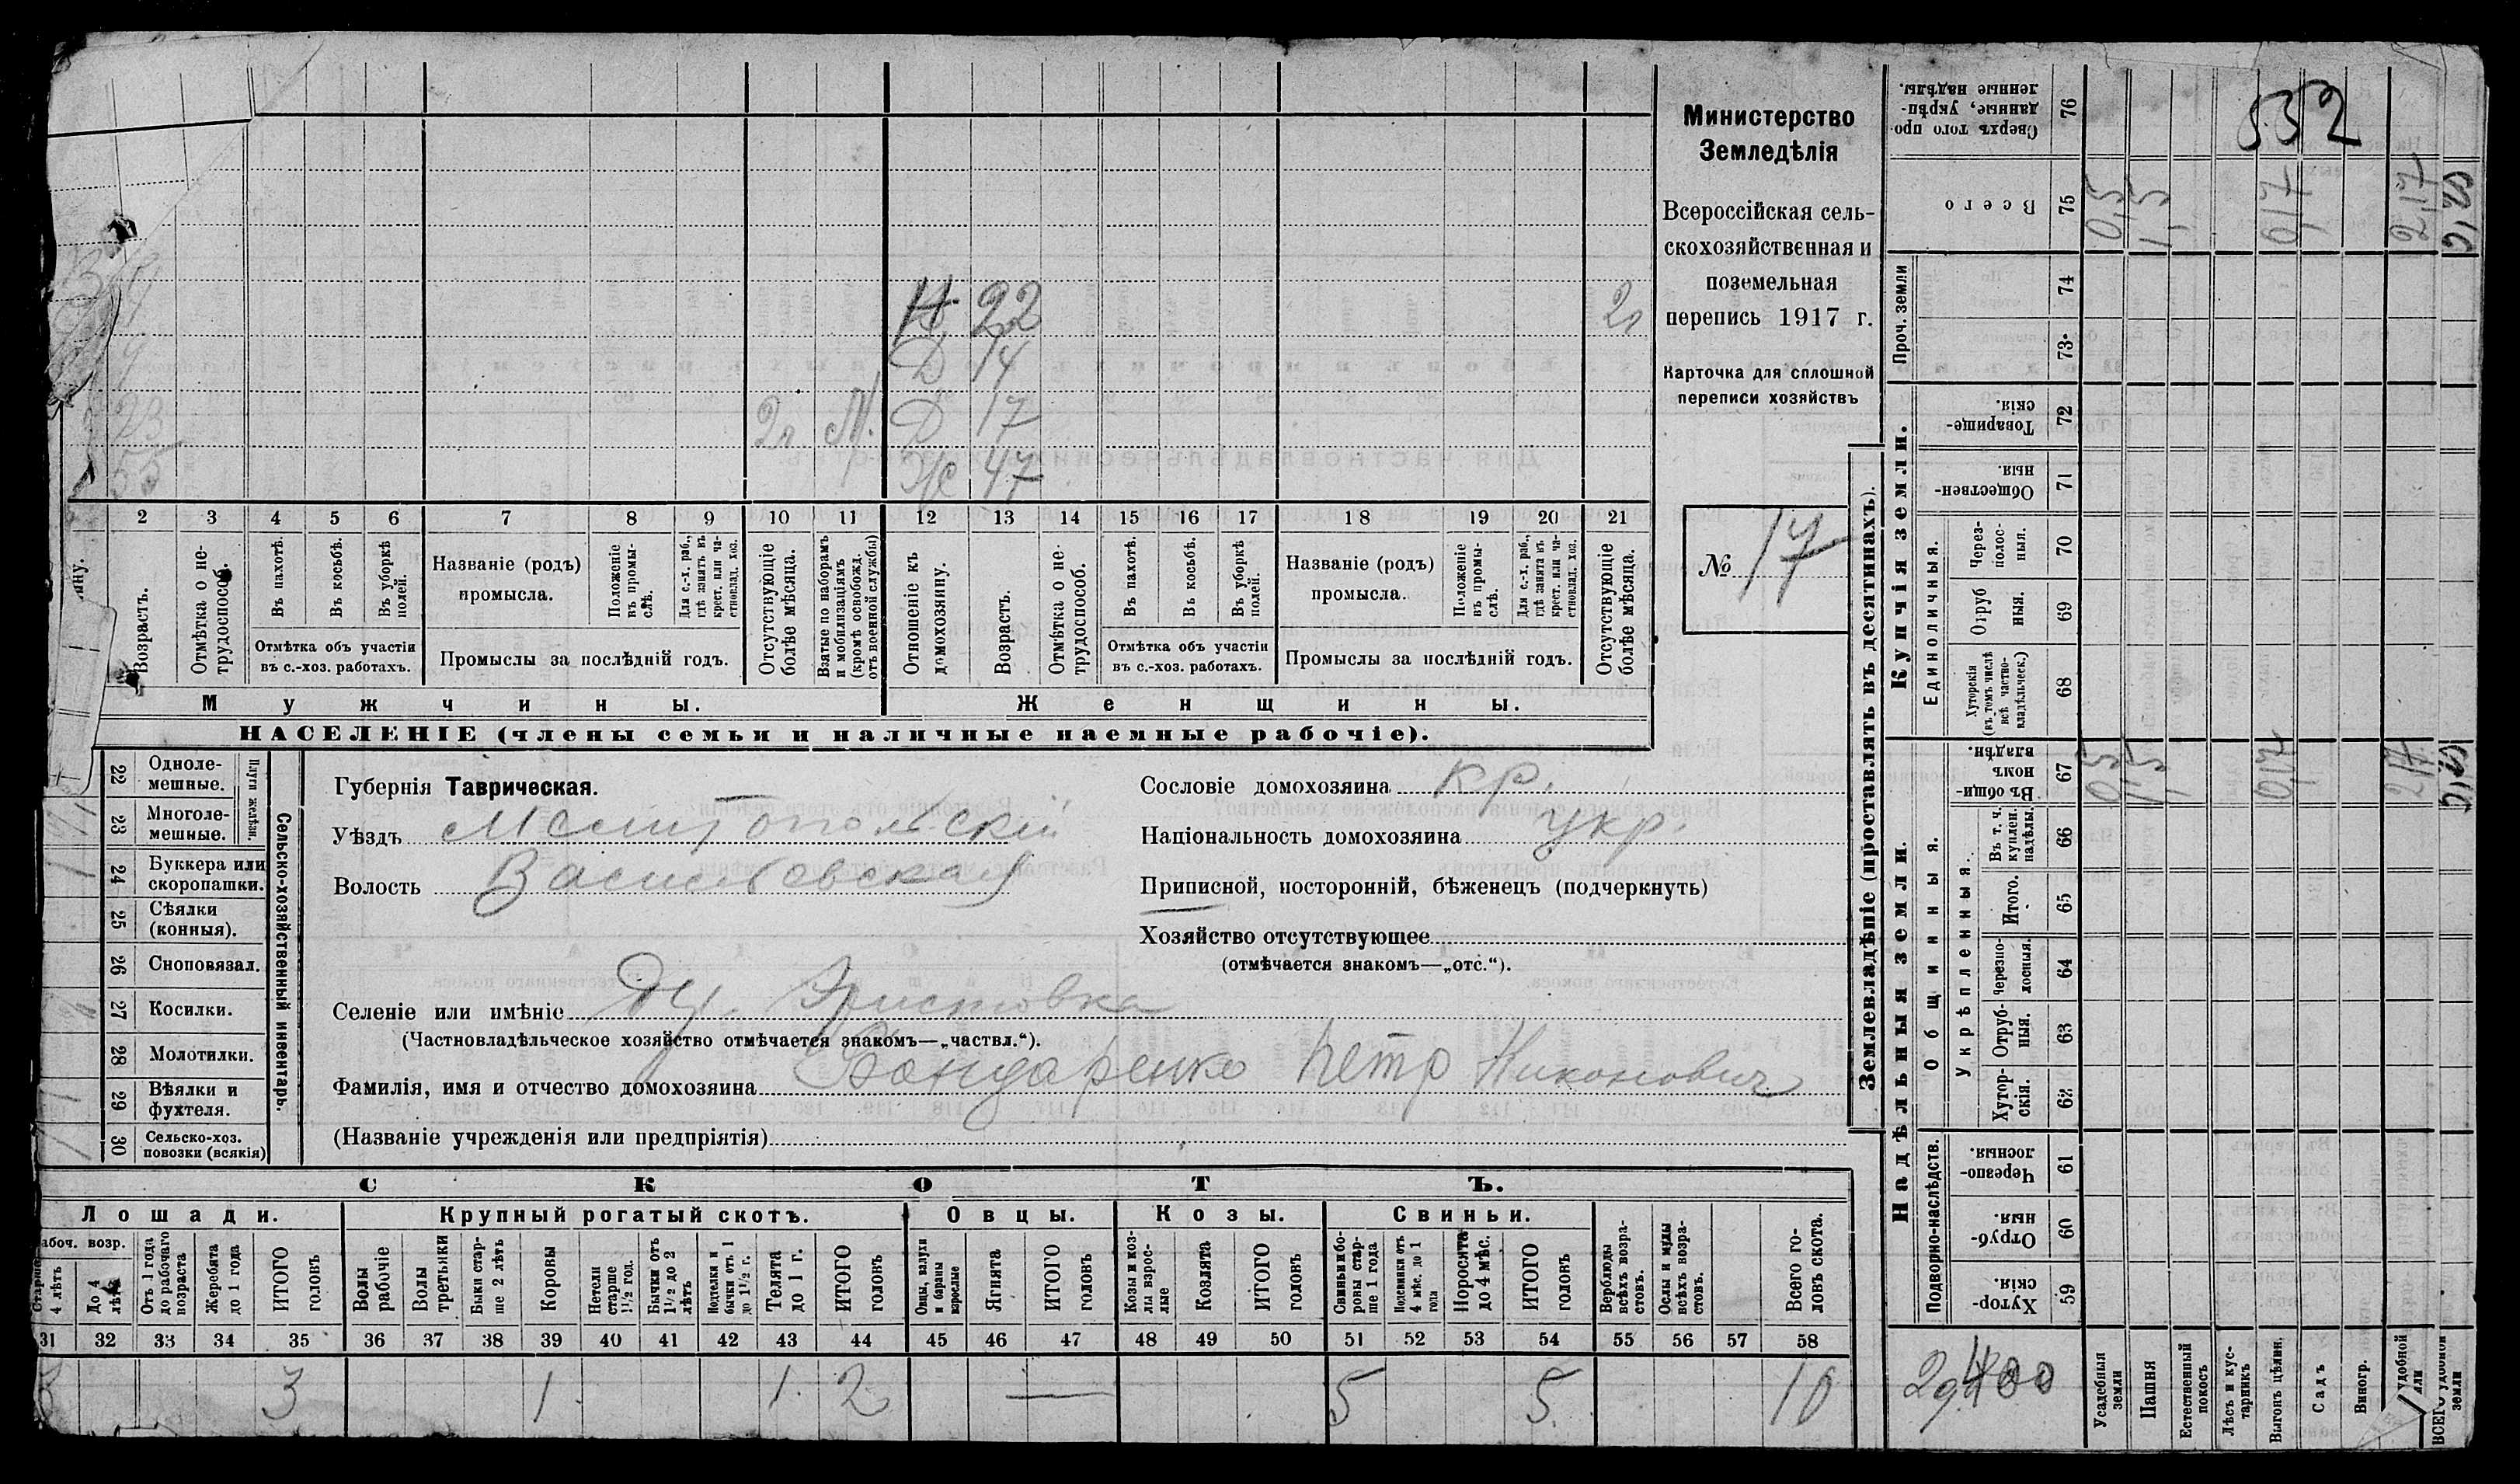 532
Министерство
Земледѣлія
Всероссійская сель-
скохозяйственная и
поземельная
перепись 1917 г.
Карточка для сплошной
переписи хозяйствъ
№ 17
Н 22 21
Д 14
23 21 М. Д 17
55 Ж 47
2 3 4 5 6 7 8 9 10 11 12 13 14 15 16 17 18 19 20 21
Возрастъ.
Отмѣтка о не-
трудоспособ.
Въ пахотѣ.
Въ косьбѣ.
Въ уборкѣ
полей.
Отмѣтка объ участіи
въ с.-хоз. работахъ.
Названіе (родъ)
промысла.
Положеніе
въ промы-
слѣ.
Для с.-х. раб.,
гдѣ занятъ въ
крест. или ча-
стновлад. хоз.
Промыслы за послѣдній годъ.
Отсутствующіе
болѣе мѣсяца.
Взятые по наборамъ
и мобилизаціямъ
(кромѣ освобожд.
отъ военной службы)
Отношеніе къ
домохозяину.
Возрастъ.
Отмѣтка о не-
трудоспособ.
Въ пахотѣ.
Въ косьбѣ.
Въ уборкѣ
полей.
Отмѣтка объ участіи
въ с.-хоз. работахъ.
Названіе (родъ)
промысла.
Положеніе
въ промы-
слѣ.
Для с.-х. раб.,
гдѣ занята въ
крест. или ча-
стновлад. хоз.
Промыслы за послѣдній годъ.
Отсутствующіе
болѣе мѣсяца.
Мужчины. Женщины.
НАСЕЛЕНІЕ (члены семьи и наличные наемные рабочіе).
22 Одноле-
мешные.
23 Многоле-
мешные.
Плуги желѣзн.
24 Буккера или
скоропашки.
25 Сѣялки
(конныя).
26 Сноповязал.
27 Косилки.
28 Молотилки.
29 Вѣялки и
фухтеля.
30 Сельско-хоз.
повозки (всякія)
Сельско-хозяйственный инвентарь.
Губернія Таврическая.
Уѣздъ Мелитопольскій
Волость Васильевская
Сословіе домохозяина кр.
Національность домохозяина укр.
Приписной, посторонній, бѣженецъ (подчеркнуть)
Хозяйство отсутствующее
(отмѣчается знакомъ—„отс.“).
Селеніе или имѣніе Эристовка
(Частновладѣльческое хозяйство отмѣчается знакомъ—„частвл.“).
Фамилія, имя и отчество домохозяина Бондаренко Петр Никонович
(Названіе учрежденія или предпріятія)
СКОТЪ.
Лошади. Крупный рогатый скотъ. Овцы. Козы. Свиньи.
абоч. возр.
Старше
4 лѣтъ
До 4
лѣтъ
Отъ 1 года
до рабочаго
возраста
Жеребята
до 1 года
ИТОГО
головъ
Волы
рабочіе
Волы
третьяки
Быки стар-
ше 2 лѣтъ
Коровы
Нетели
старше
1½ год.
Бычки отъ
1½ до 2
лѣтъ
Подтелки и
бычки отъ 1
до 1½ г.
Телята
до 1 г.
ИТОГО
головъ
Овцы, валухи
и бараны
взрослые
Ягнята
ИТОГО
головъ
Козы и коз-
лы взрос-
лые
Козлята
ИТОГО
головъ
Свиньи и бо-
ровы стар-
ше 1 года
Подсвинки отъ
4 мѣс. до 1
года
Поросята
до 4 мѣс.
ИТОГО
головъ
Верблюды
всѣхъ возра-
стовъ.
Ослы и мулы
всѣхъ возра-
стовъ.
Всего го-
ловъ скота.
31 32 33 34 35 36 37 38 39 40 41 42 43 44 45 46 47 48 49 50 51 52 53 54 55 56 57 58
3 3 1 1 2 — 5 5 10
Землевладѣніе (проставлять въ десятинахъ).
Купчія земли.
Надѣльныя земли.
Сверхъ того про-
данные, укрѣп-
ленные надѣлы.
76
Всего 75 0,5 1,5 0,17 2,17
Проч. земли 74
73
Товарище-
скія. 72
Обществен-
ныя. 71
Единоличныя.
Через-
полос-
ныя. 70
Отруб
ныя. 69
Хуторскія
(въ томъ числѣ
всѣ частно-
владѣльческ.) 68
Общинныя.
Въ общи-
номъ
владѣн. 67 0,5 1,5 0,17 2,17
Укрѣпленныя.
Въ т. ч.
куплен.
надѣлы. 66
Итого. 65
Черезпо-
лосныя. 64
Отруб-
ныя. 63
Хутор-
скія. 62
Подворно-наслѣдств.
Черезпо-
лосныя. 61
Отруб-
ныя. 60
Хутор-
скія. 59
Усадебныя
земли
Пашня
Естественный
покосъ
Лѣсъ и кус-
тарникъ
Выгонъ цѣлин.
Садъ
Виногр.
удобной
ли
ВСЕГО удобной
земли